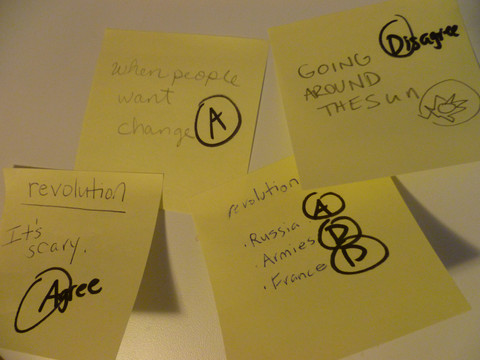 when people
want
change A
Disagree
GOING
AROUND
THE SUN
revolution
It's
scary.
Agree
revolution A
. Russia
. Armies D
. France D